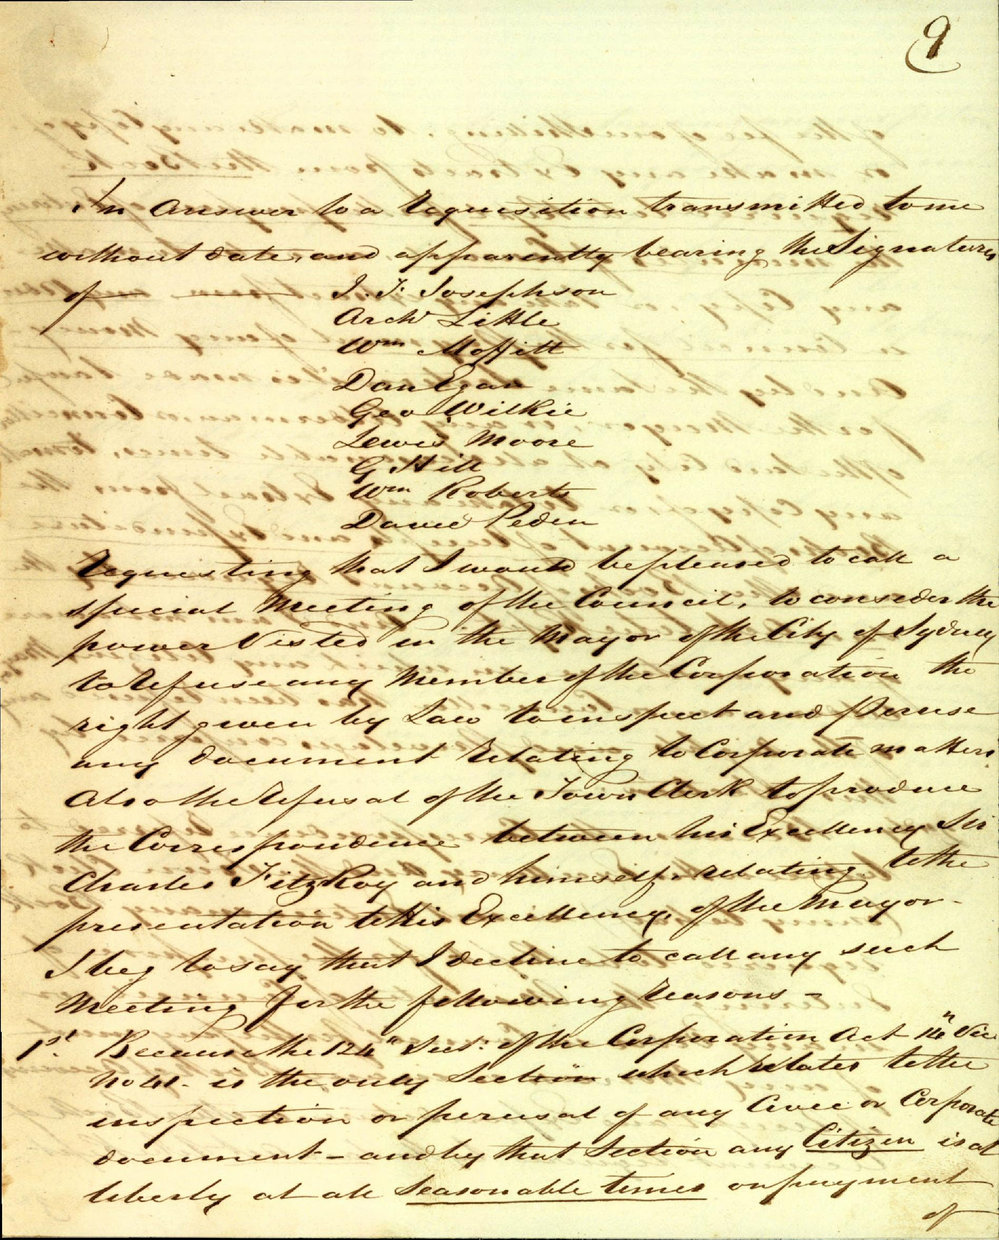 9
In Answer to a Requisition transmitted to me
without date, and apparently bearing the Signatures
of
J. F. Josephson
Archd Little
Wm Moffitt
Dan Egan
Geo Wilkie
Lewis Moore
G Hill
Wm Roberts
David Peden
Requesting that I would be pleased to call a
special Meeting of the Council, to consider the
power Vested in the Mayor of the City of Sydney
to Refuse any Member of the Corporation the
right given by Law to inspect and Peruse
any document Relating to Corporate matters.
Also the Refusal of the Town Clerk to produce
the Correspondence between his Excellency Sir
Charles FitzRoy and himself, relating to the
presentation to His Excellency, of the Mayor -
I beg to say that I decline to call any such
Meeting for the following Reasons -
1st. Because the 124th Sec: of the Corporation Act 14th Vic
No 41. is the only Section which Relates to the
inspection or perusal of any Civic or Corporate
document - and by that Section any Citizen is at
liberty at all Seasonable times on payment
of